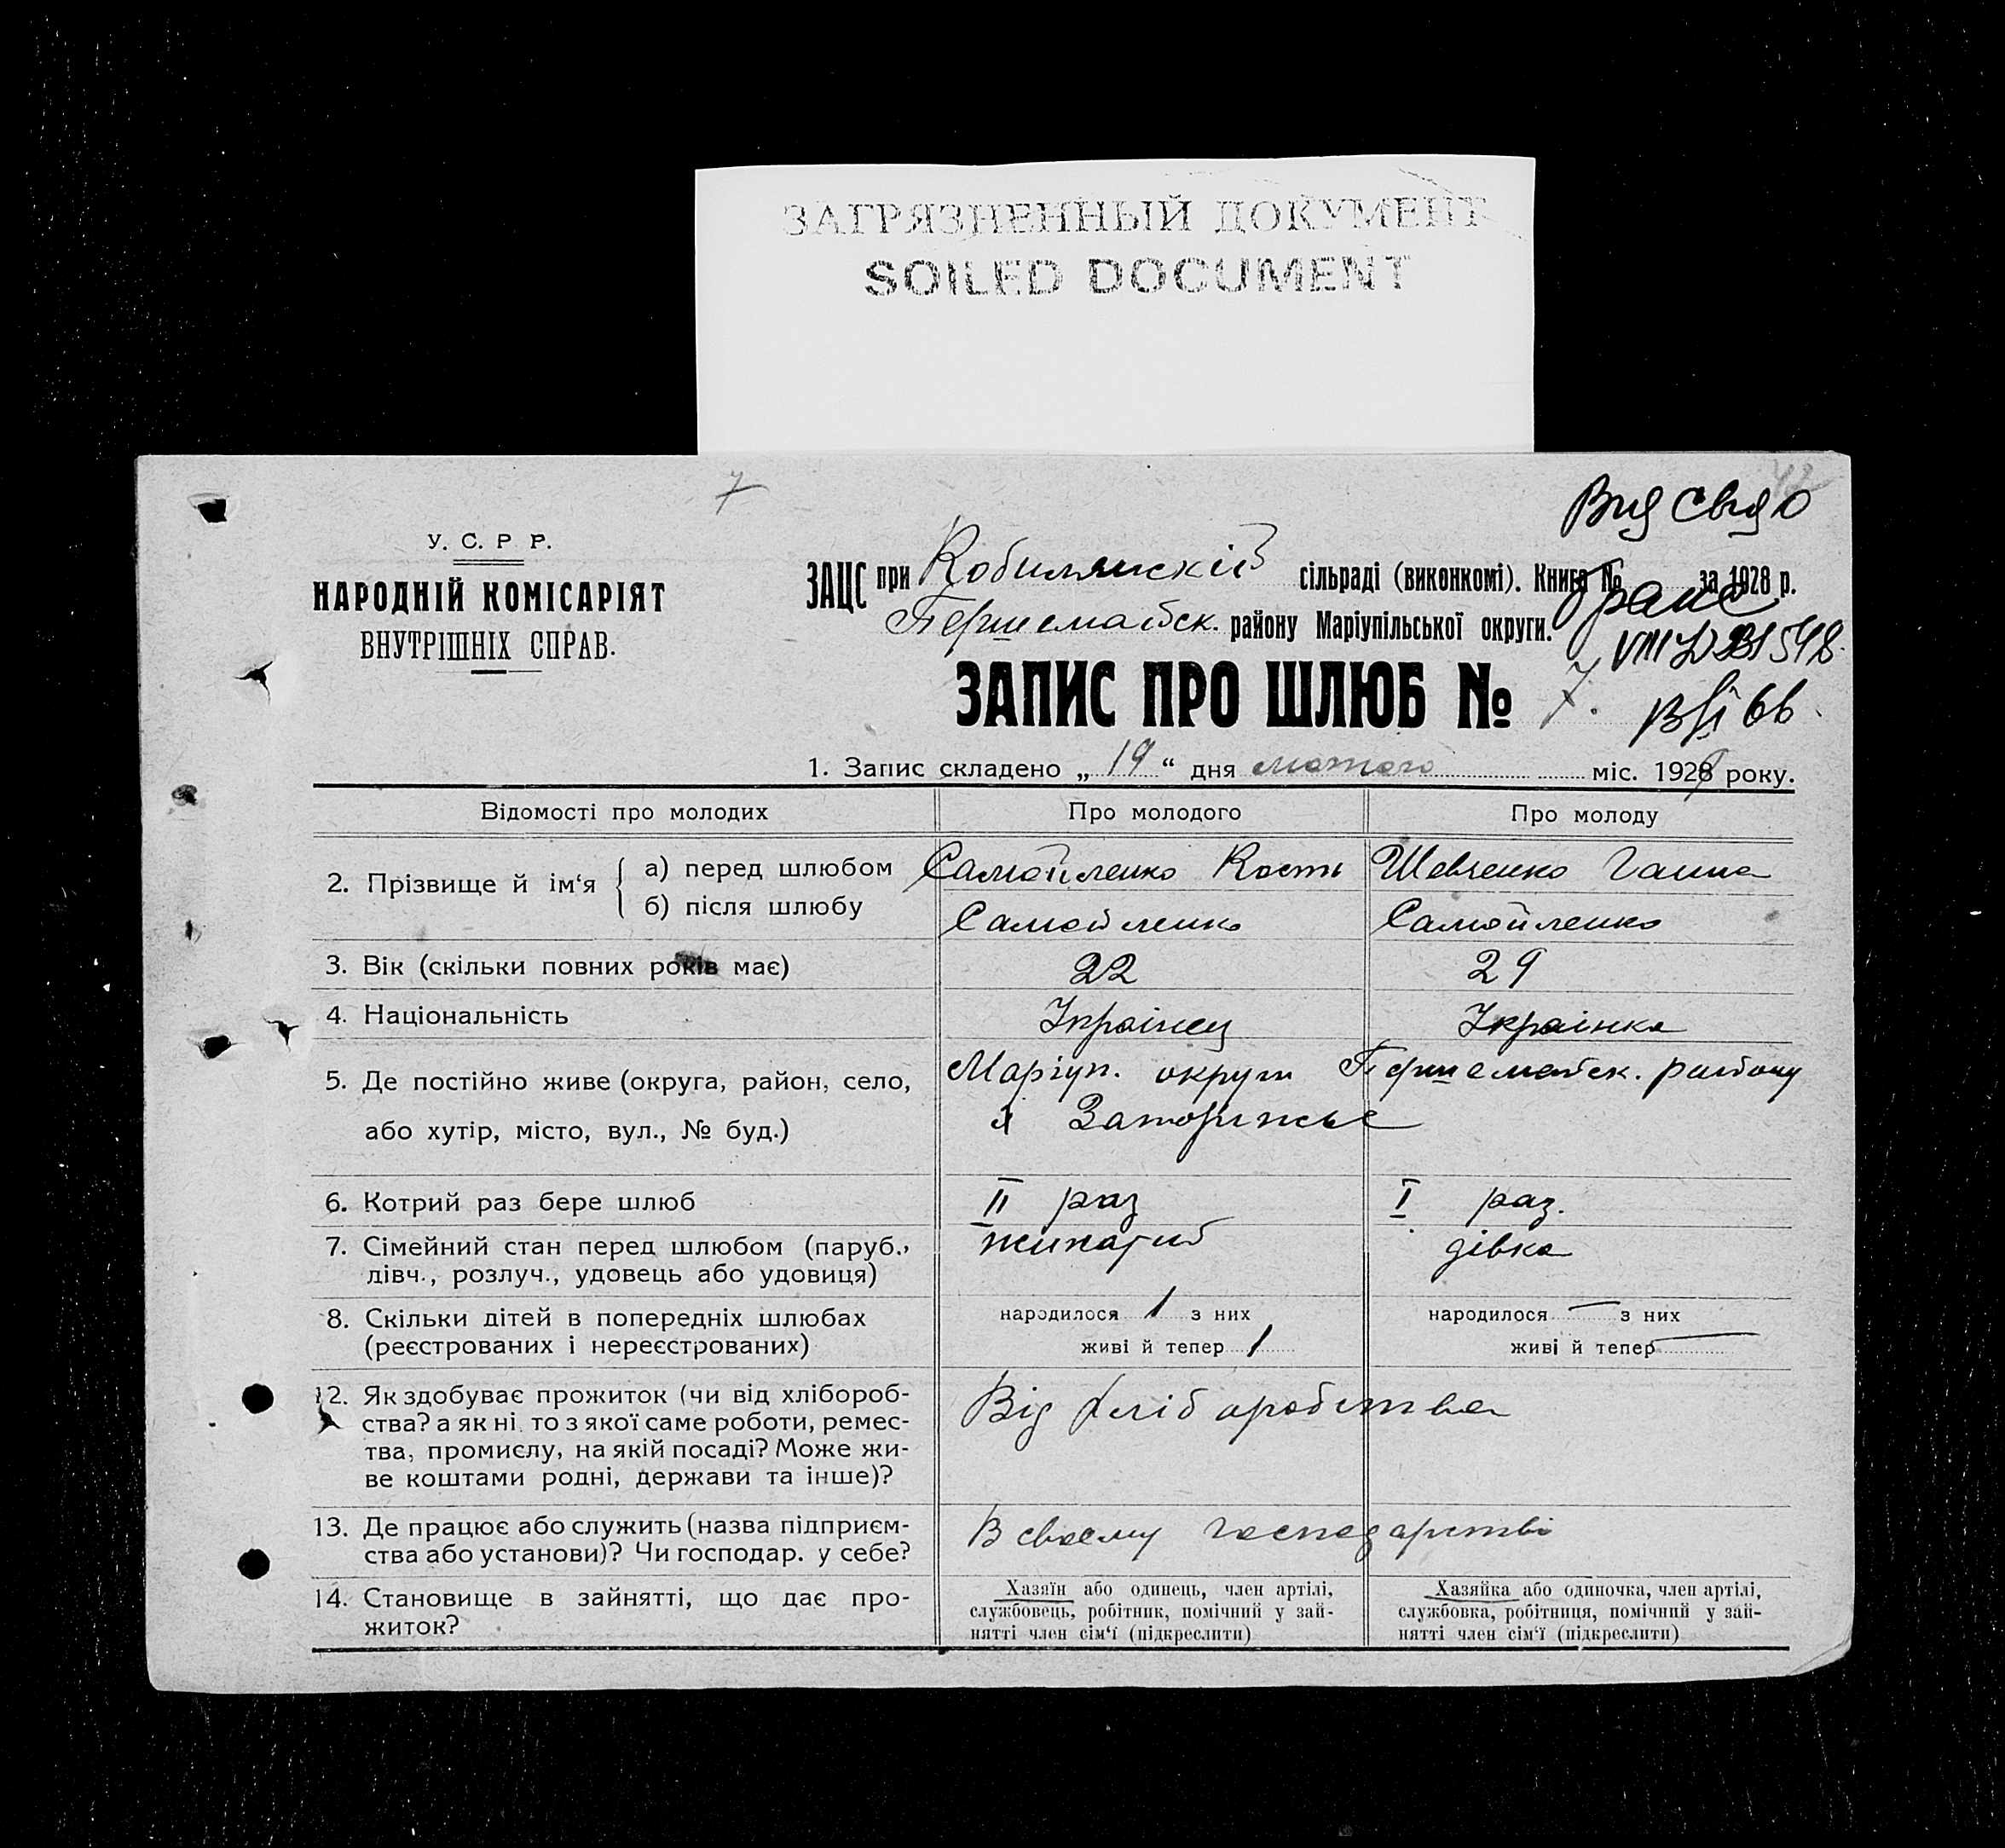 ЗАГРЯЗНЕННЫЙ ДОКУМЕНТ
SOILED DOCUMENT
7
42
Вид свидо
браке
VIII
У. С. Р. Р.
НАРОДНІЙ КОМІСАРІЯТ
ВНУТРІШНІХ СПРАВ.
ЗАЦС при Кобилянскій сільраді (виконкомі). Книга № за 1928 р.
Першемайск. району Маріупільської округи.
ЗАПИС ПРО ШЛЮБ № 7.
1. Запис складено „ 19 “ дня лютого міс. 1929 року.
Відомості про молодих Про молодого Про молоду
2. Прізвище й ім‘я
а) перед шлюбом Самойленко Кость Шевченко Ганна
б) після шлюбу Самойленко Самойленко
3. Вік (скільки повних років має) 22 29
4. Національність Українец Українка
5. Де постійно живе (округа, район, село, Маріуп. округи Першемайск. району
або хутір, місто, вул., № буд.) х Запоріжьє
6. Котрий раз бере шлюб II раз I раз.
7. Сімейний стан перед шлюбом (паруб., жонатий дівка
дівч., розлуч., удовець або удовиця)
8. Скільки дітей в попередніх шлюбах народилося 1 з них народилося — з них
(реєстрованих і нереєстрованих) живі й тепер 1 живі й тепер —
12. Як здобуває прожиток (чи від хлібороб- Від хліборобства
ства? а як ні, то з якої саме роботи, ремес-
тва, промислу, на якій посаді? Може жи-
ве коштами родні, держави та інше)?
13. Де працює або служить (назва підприєм- В своєму господарстві
ства або установи)? Чи господар. у себе?
14. Становище в зайнятті, що дає про- Хазяїн або одинець, член артілі, Хазяйка або одиночка, член артілі,
житок? службовець, робітник, помічний у зай- службовка, робітниця, помічний у зай-
нятті член сім‘ї (підкреслити) нятті член сім‘ї (підкреслити)